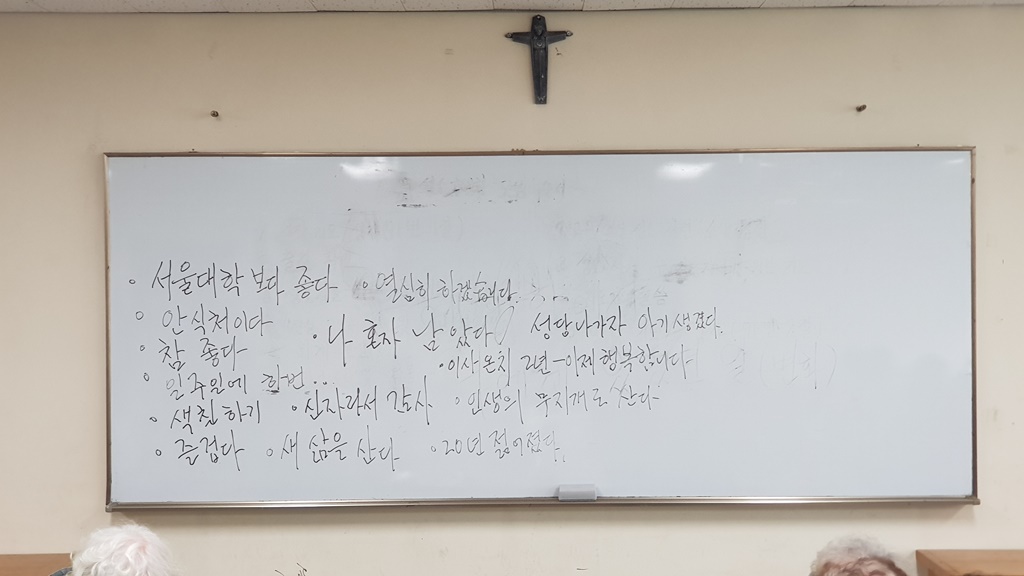 ◦ 서울대학 보다 좋다 ◦ 열심히 하겠습니다.
◦ 안식처이다 • 나 혼자 남았다 성당나가자 아기생겼다.
• 참 좋다 • 이사온치 2년-이제행복합니다
◦ 일주일에 한번...
◦ 색칠하기 ◦ 신자라서 감사 ◦ 인생의 무지개로 산다
◦ 즐겁다 ◦ 새 삶을 산다 ◦ 20년 젊어졌다.